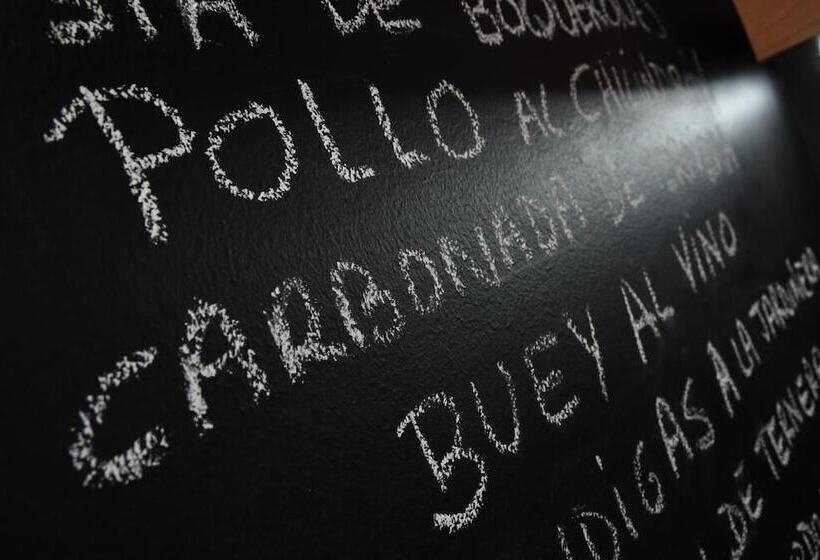 DE BOQUERONES
POLLO AL CHILINDRÓN
CARBONADA DE
BUEY AL VINO
A LA JARDINERA
DE TERNERA